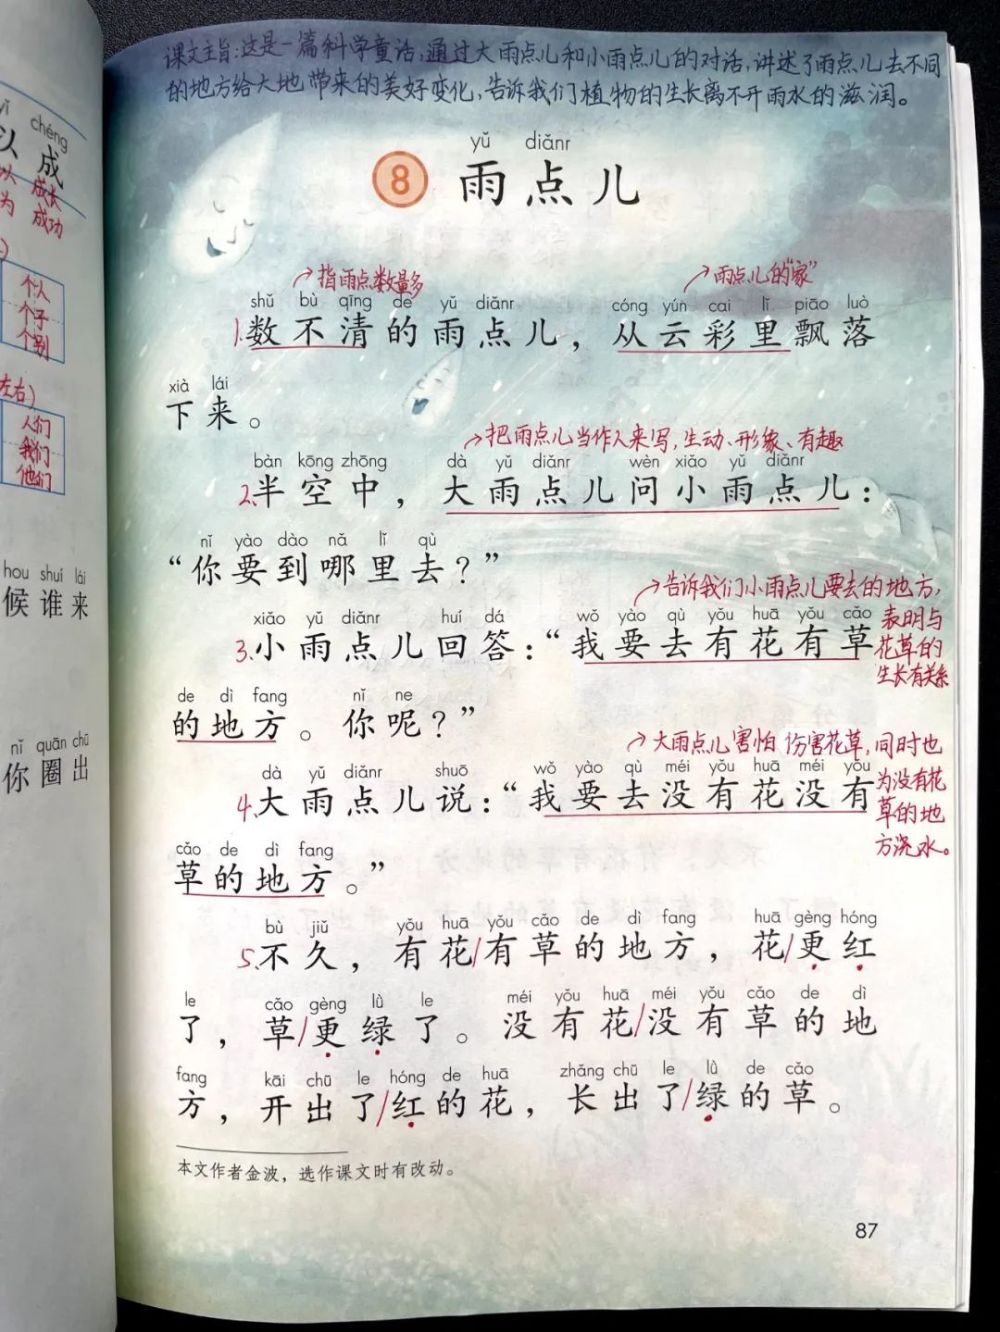 课文主旨:这是一篇科学童话,通过大雨点儿和小雨点儿的对话,讲述了雨点儿去不同
的地方给大地带来的美好变化,告诉我们植物的生长离不开雨水的滋润。
yǔ diǎnr
8 雨点儿
指雨点数量多
雨点儿的"家"
shǔ bù qīng de yǔ diǎnr cóng yún cai lǐ piāo luò
1.数不清的雨点儿，从云彩里飘落
xià lái
下来。
把雨点儿当作人来写,生动、形象、有趣
bàn kōng zhōng dà yǔ diǎnr wèn xiǎo yǔ diǎnr
2.半空中，大雨点儿问小雨点儿：
nǐ yào dào nǎ lǐ qù
“你要到哪里去？”
告诉我们小雨点儿要去的地方,
表明与
花草的
生长有关系
xiǎo yǔ diǎnr huí dá wǒ yào qù yǒu huā yǒu cǎo
3.小雨点儿回答：“我要去有花有草
de dì fang nǐ ne
的地方。你呢？”
大雨点儿害怕伤害花草,同时也
为没有花
草的地
方浇水。
dà yǔ diǎnr shuō wǒ yào qù méi yǒu huā méi yǒu
4.大雨点儿说：“我要去没有花没有
cǎo de dì fang
草的地方。”
bù jiǔ yǒu huā yǒu cǎo de dì fang huā gèng hóng
5.不久，有花/有草的地方，花/更红
le cǎo gèng lǜ le méi yǒu huā méi yǒu cǎo de dì
了，草/更绿了。没有花/没有草的地
fang kāi chū le hóng de huā zhǎng chū le lǜ de cǎo
方，开出了/红的花，长出了/绿的草。
本文作者金波，选作课文时有改动。
87
yǐ chéng
以 成
以 成长
为 成功
个人
个子
个别
左右)
人们
我们
他们
hou shuí lái
候谁来
nǐ quān chū
你圈出